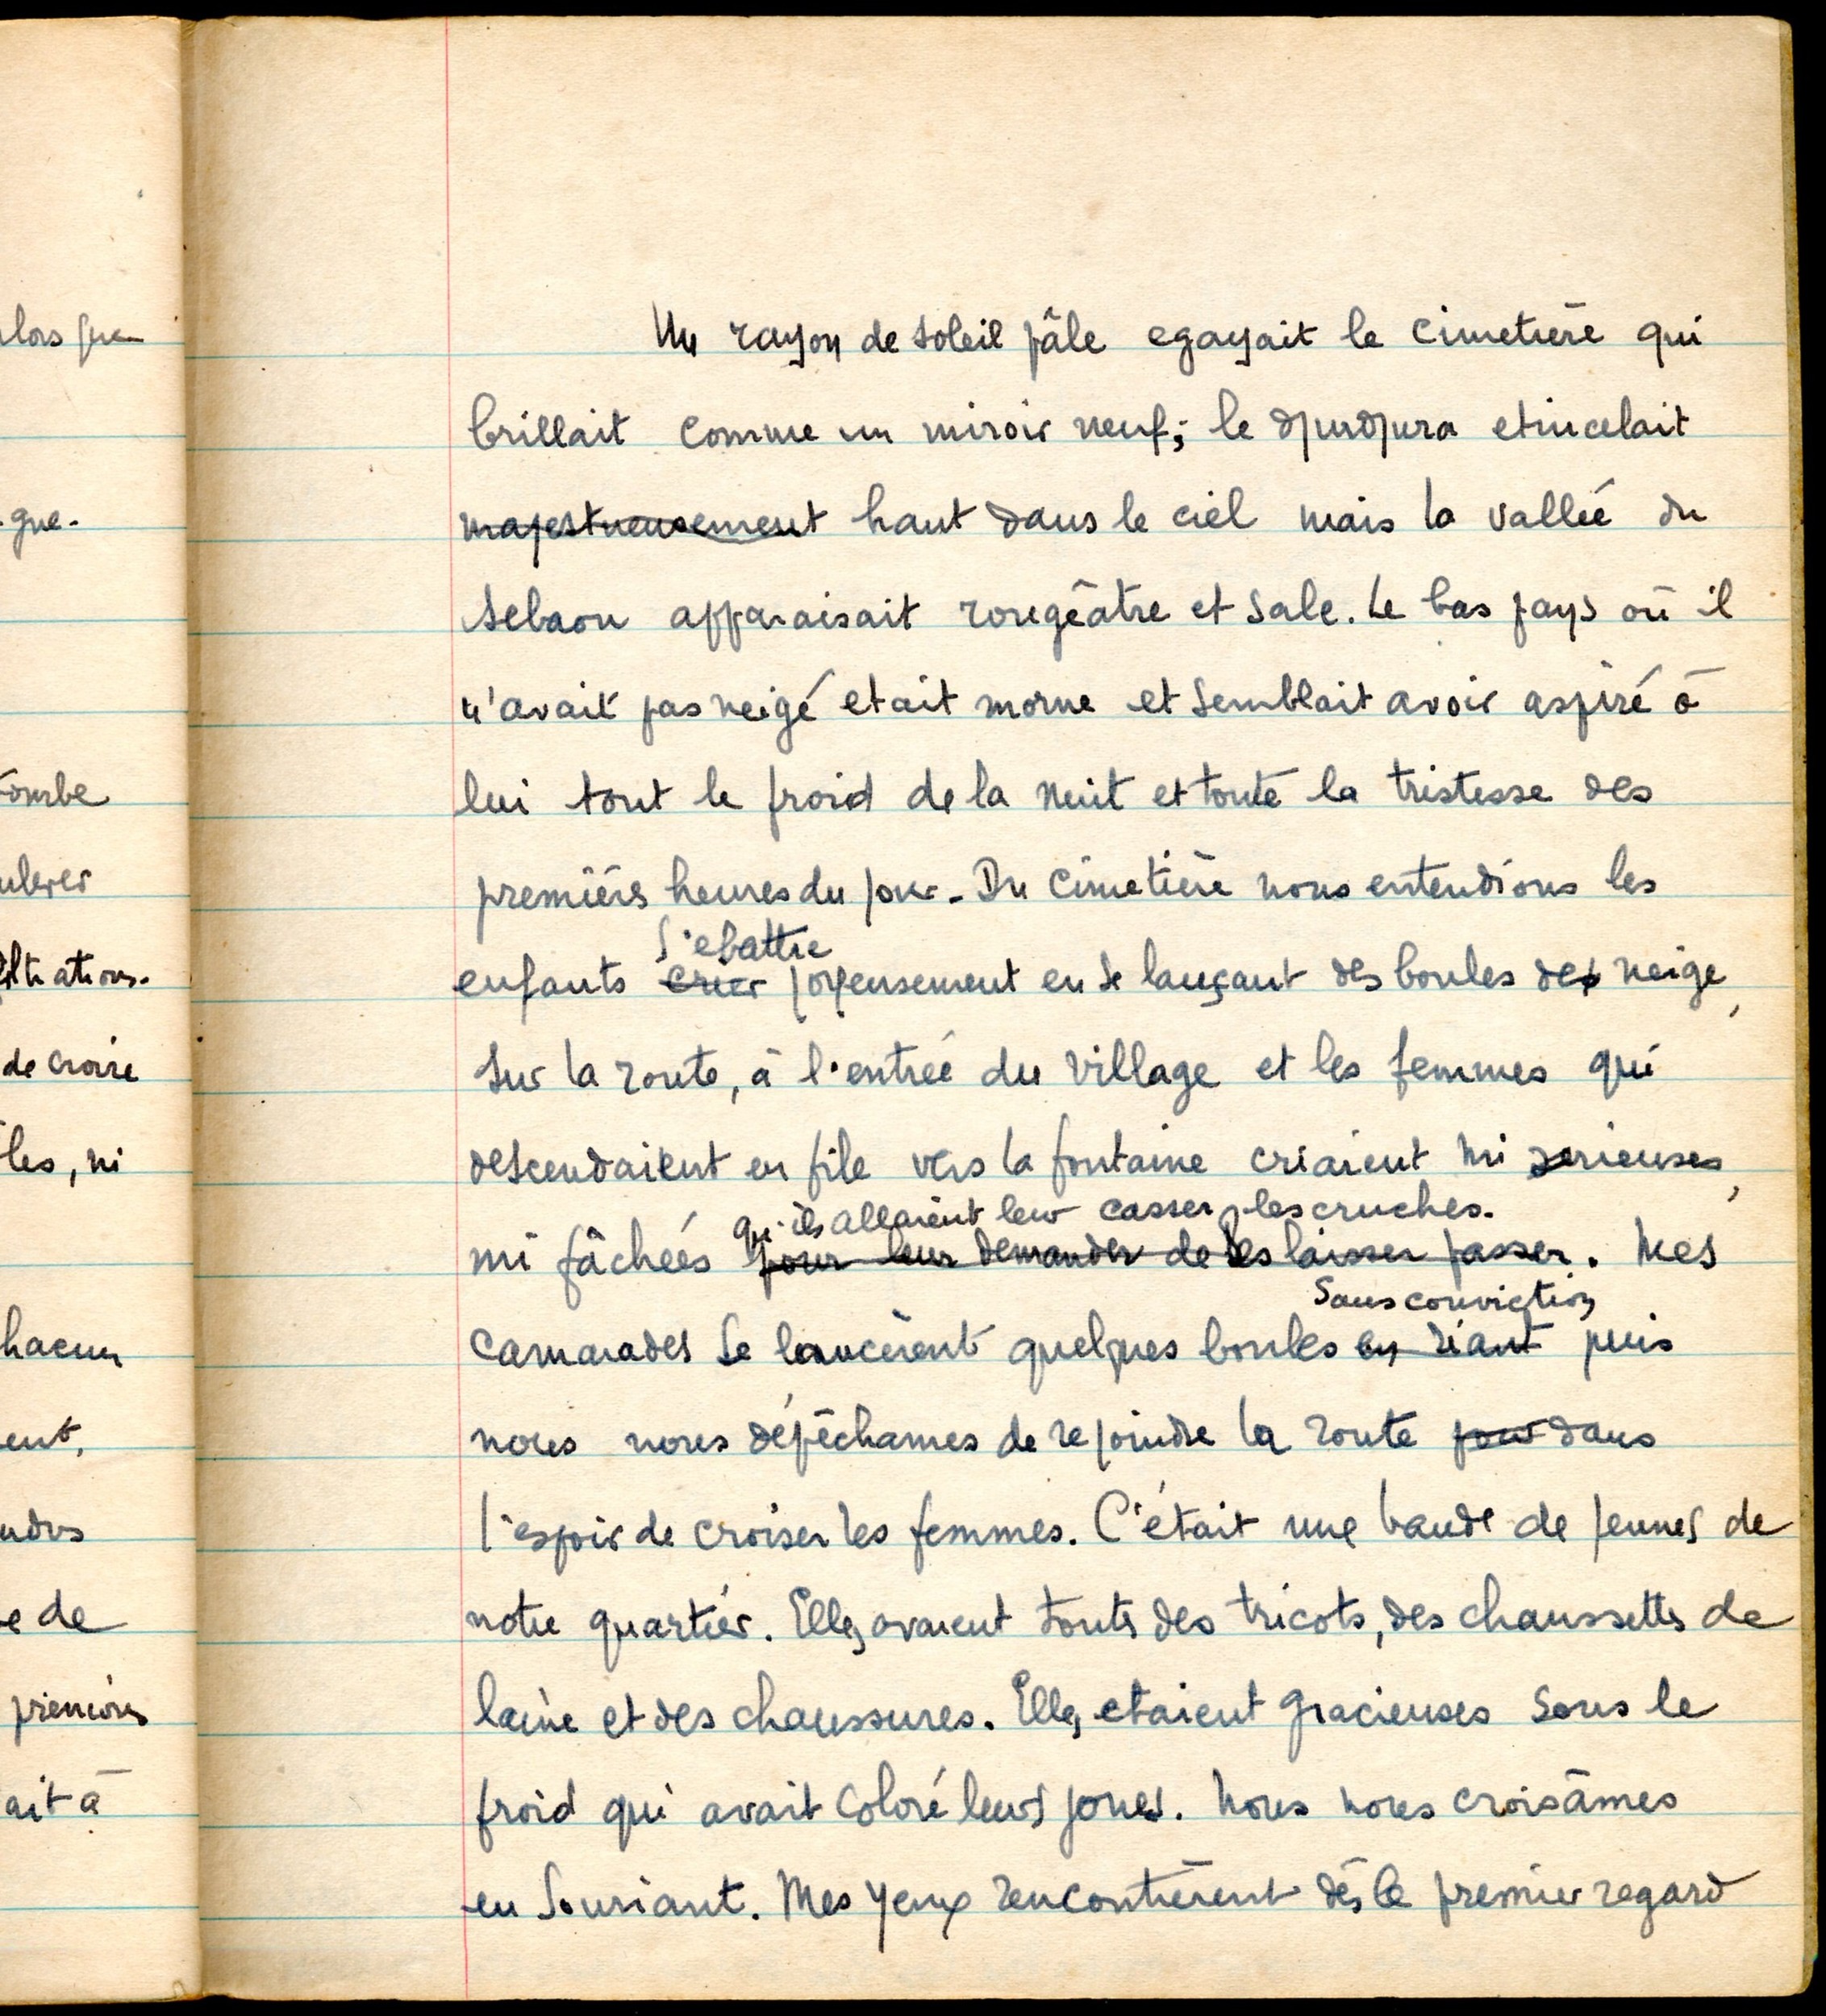 lors que
gue.
tombe
ulever
filtrations.
de croire
les, ni
hacun
ent,
ndus
e de
premières
ait à
Un rayon de soleil pâle egayait le cimetière qui
brillait comme un miroir neuf; le djurdjura etincelait
majestueusement haut dans le ciel mais la vallée du
Sebaou apparaisait rougeâtre et sale. Le bas pays où il
n'avait pas neigé etait morne et semblait avoir aspiré à
lui tout le froid de la nuit et toute la tristesse des
premières heures du jour. Du cimetière nous entendions les
s'ebattre
enfants crier joyeusement en se lançant des boules des neige,
sur la route, à l'entrée du village et les femmes qui
descendaient en file vers la fontaine criaient mi serieuses,
qu'ils allaient leur casser les cruches.
mi fâchées pour leur demander de les laisser passer. Mes
sans conviction
camarades se lancèrent quelques boules en riant puis
nous nous dépêchames de rejoindre la route pour dans
l'espoir de croiser les femmes. C'était une bande de jeunes de
notre quartier. Elles avaient toutes des tricots, des chaussettes de
laine et des chaussures. Elles etaient gracieuses sous le
froid qui avait coloré leurs joues. Nous nous croisâmes
en souriant. Mes yeux rencontrèrent dès le premier regard